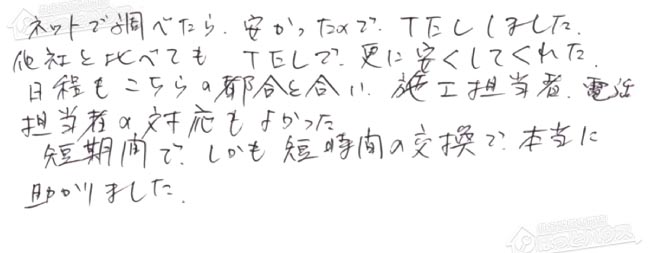 ネットで調べたら、安かったので、TELしました。
他社と比べても TELで、更に安くしてくれた。
日程もこちらの都合と合い、施工担当者、電話
担当者の対応もよかった
短期間で、しかも短時間の交換で、本当に
助かりました。